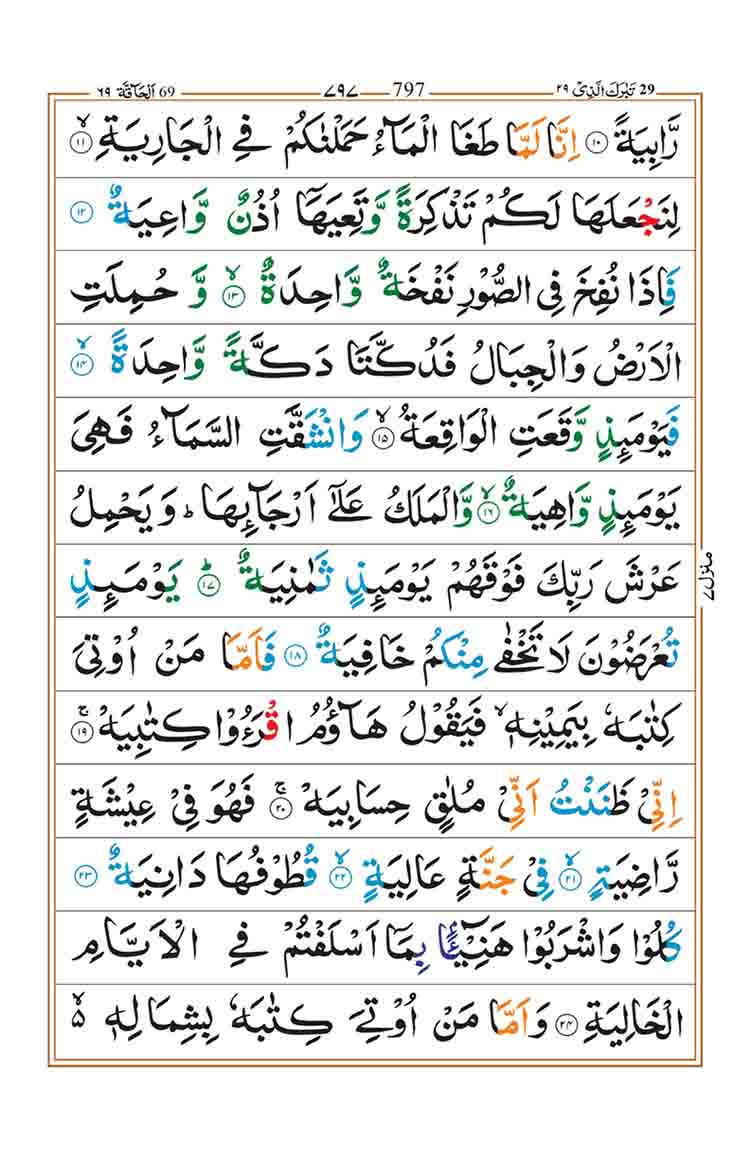 29 تَبٰرَكَ الَّذِىْ ٢٩ 797 ٧٩٧ 69 اَلْحَآقَّة ٦٩
رَّابِيَةً ۝١٠ اِنَّا لَمَّا طَغَا الْمَآءُ حَمَلْنٰكُمْ فِى الْجَارِيَةِ ۙ۝١١
لِنَجْعَلَهَا لَكُمْ تَذْكِرَةً وَّتَعِيَهَاۤ اُذُنٌ وَّاعِيَةٌ ۝١٢
فَاِذَا نُفِخَ فِى الصُّوْرِ نَفْخَةٌ وَّاحِدَةٌ ۙ۝١٣ وَّ حُمِلَتِ
الْاَرْضُ وَالْجِبَالُ فَدُكَّتَا دَكَّةً وَّاحِدَةً ۙ۝١٤
فَيَوْمَئِذٍ وَّقَعَتِ الْوَاقِعَةُ ۙ۝١٥ وَانْشَقَّتِ السَّمَآءُ فَهِىَ
يَوْمَئِذٍ وَّاهِيَةٌ ۙ۝١٦ وَّالْمَلَكُ عَلٰٓى اَرْجَآئِهَا ؕ وَيَحْمِلُ
عَرْشَ رَبِّكَ فَوْقَهُمْ يَوْمَئِذٍ ثَمٰنِيَةٌ ؕ۝١٧ يَوْمَئِذٍ
تُعْرَضُوْنَ لَا تَخْفٰى مِنْكُمْ خَافِيَةٌ ۝١٨ فَاَمَّا مَنْ اُوْتِىَ
كِتٰبَهٗ بِيَمِيْنِهٖ ۙ فَيَقُوْلُ هَآؤُمُ اقْرَءُوْا كِتٰبِيَهْ ۚ۝١٩
اِنِّىْ ظَنَنْتُ اَنِّىْ مُلٰقٍ حِسَابِيَهْ ۚ۝٢٠ فَهُوَ فِىْ عِيْشَةٍ
رَّاضِيَةٍ ۙ۝٢١ فِىْ جَنَّةٍ عَالِيَةٍ ۙ۝٢٢ قُطُوْفُهَا دَانِيَةٌ ۝٢٣
كُلُوْا وَاشْرَبُوْا هَنِيْٓئًا بِمَاۤ اَسْلَفْتُمْ فِى الْاَيَّامِ
الْخَالِيَةِ ۝٢٤ وَاَمَّا مَنْ اُوْتِىَ كِتٰبَهٗ بِشِمَالِهٖ ۙ۬
منزل ٧